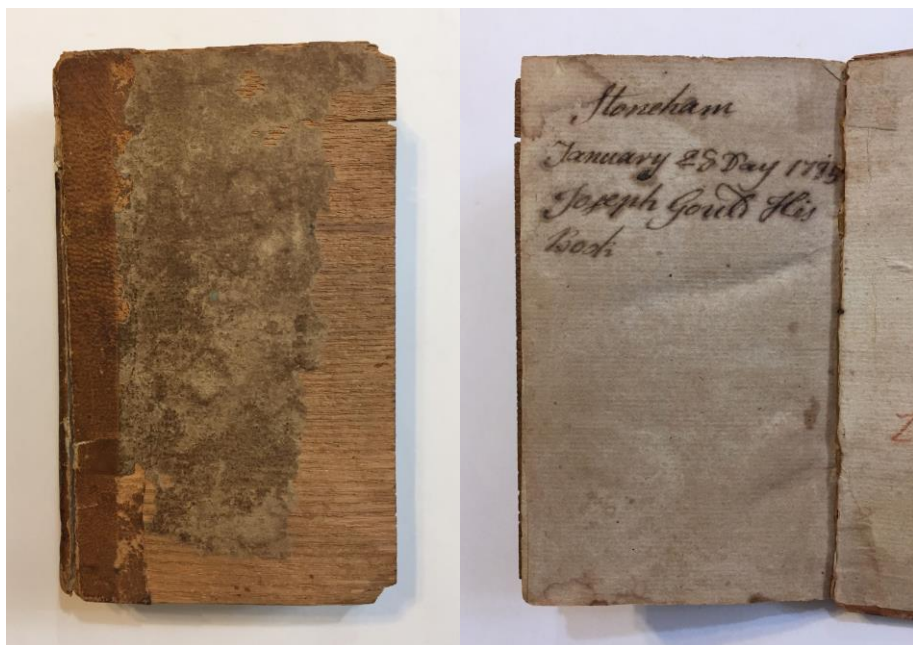 Stoneham
January 28 Day 1795
Joseph Gould His
Book